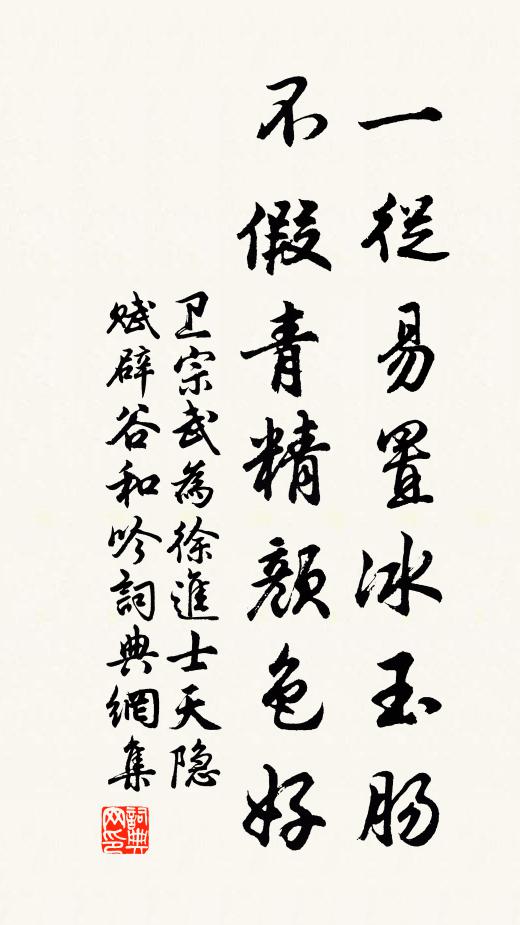 一從易置冰玉肠
不假青精顔色好
卫宗武為徐進士天隐
赋辟谷和吟詞典網集
詞典网印